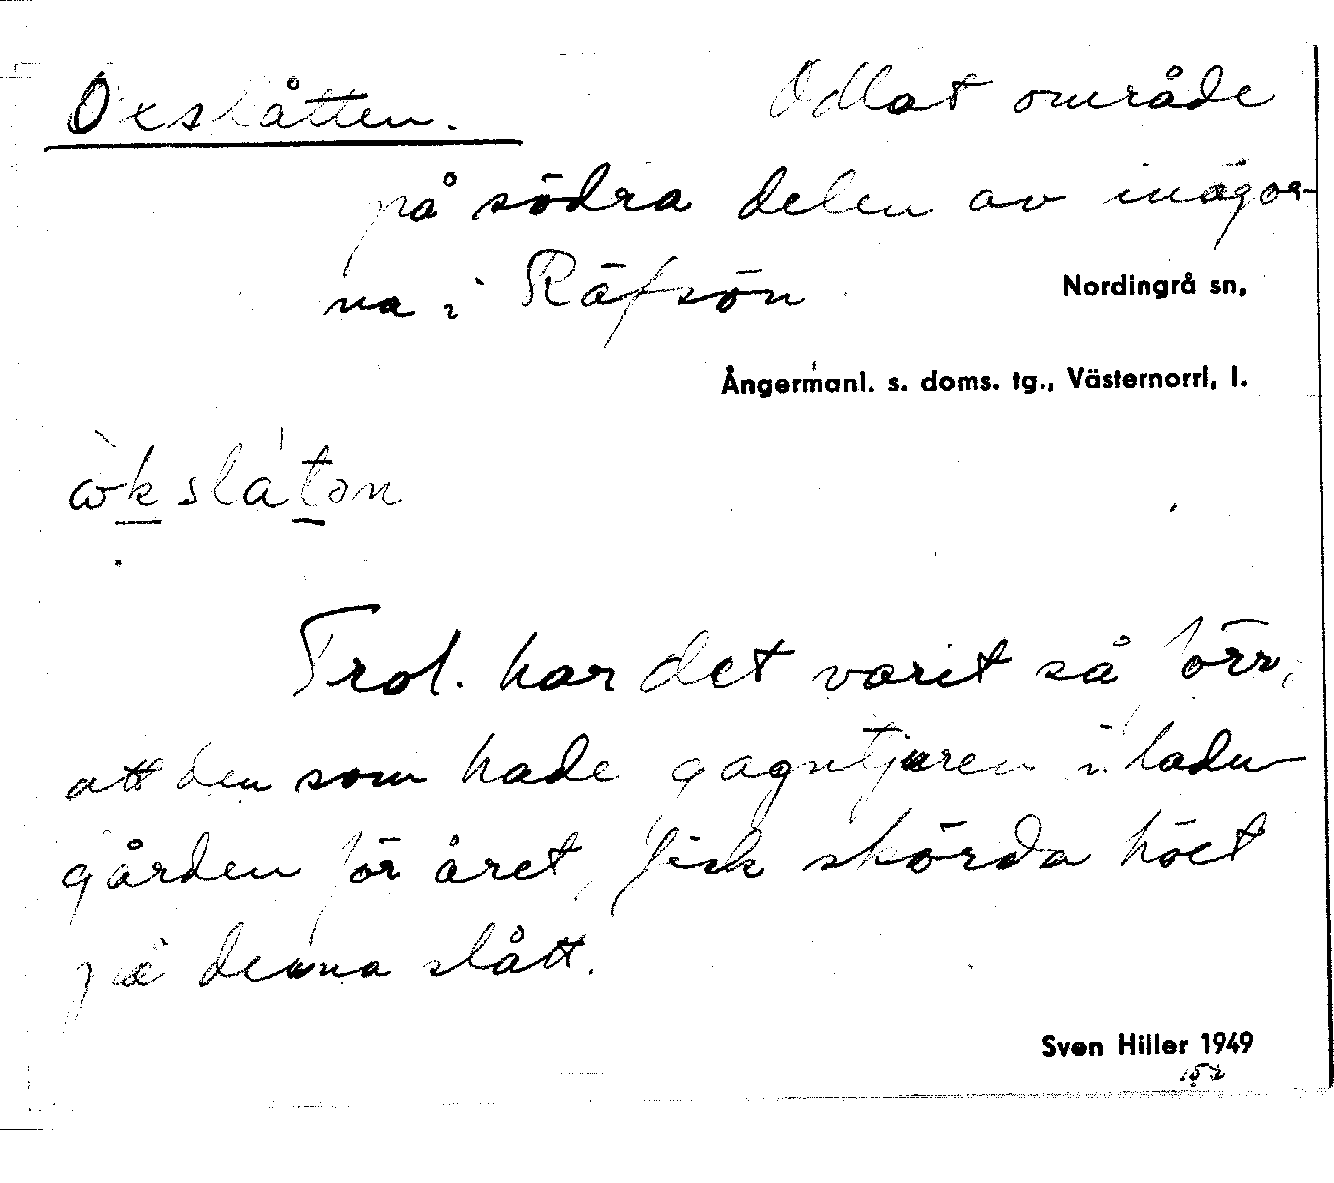 Oxslåtten. Odlat område
på södra delen av inägor-
na i Räfsön Nordingrå sn,
Ångermanl. s. doms. tg., Västernorrl, l.
Trol. har det varit så förr,
att den som hade gagntjuren i ladu-
gården för året, fick skörda höet
på denna slått.
Sven Hiller 1949